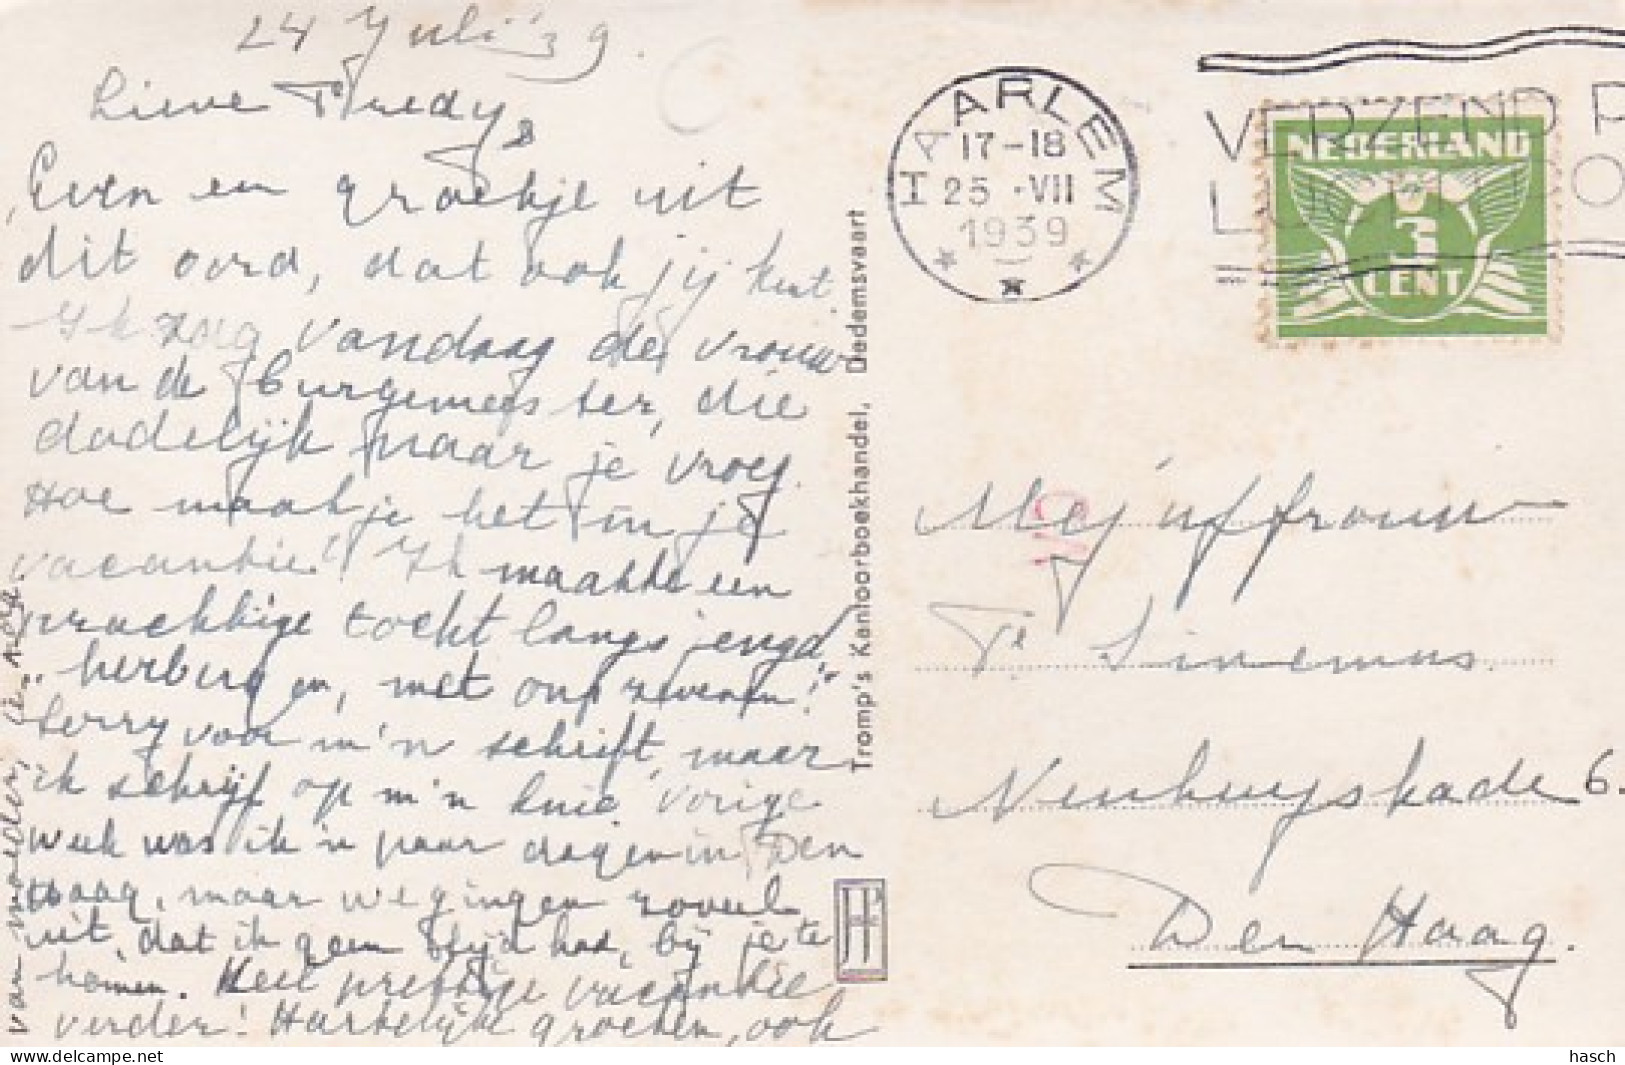 24 Juli '39.
Lieve Tredy,
Even een groetje uit
dit oord, dat ook jij kent.
Ik zag vandaag de vrouw
van de burgemeester, die
dadelijk naar je vroeg.
Hoe maak je het in je
vacantie? Ik maakte een
prachtige tocht langs jeugd
herbergen, met
Sorry voor m'n schrift, maar
ik schrijf op m'n knie. Vorige
week was ik 'n paar dagen in Den
Haag, maar we gingen zoveel
uit, dat ik geen tijd had, bij je te
komen. Heel prettige vacantie
verder! Hartelijke groeten, ook
van moeder,
HAARLEM
17-18
25 .VII
1939
VERZEND P
NEDERLAND
3
CENT
Tromp's Kantoorboekhandel, Dedemsvaart
Mejuffrouw
T. Sinemus.
Nenhuyskade 6.
Den Haag.
hasch
www.delcampe.net